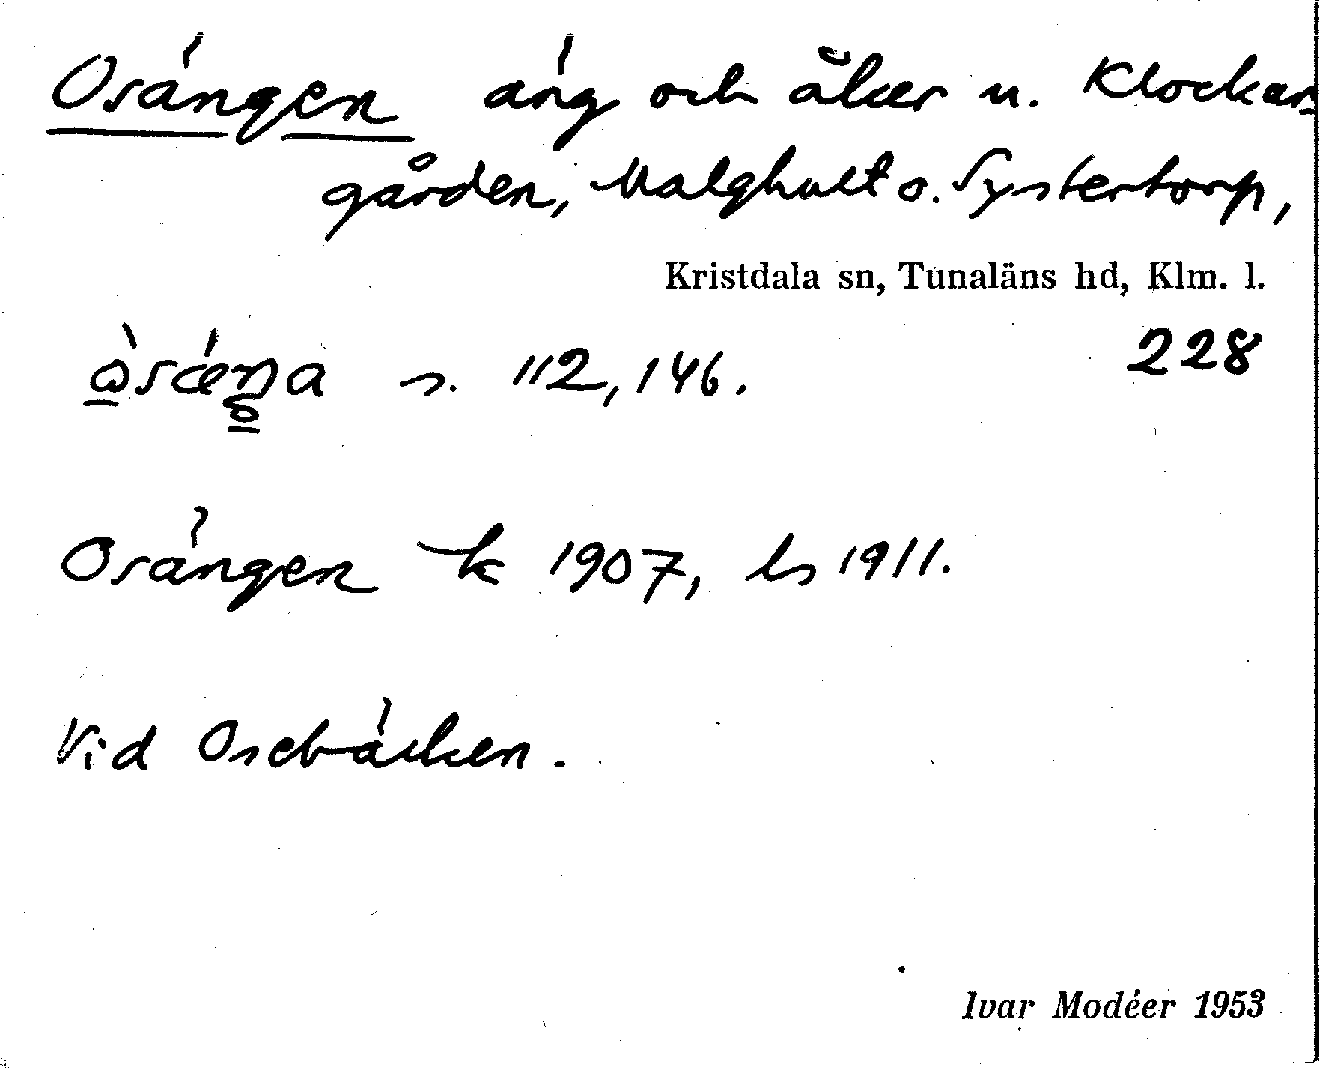 Osängen äng och åker u. Klockar-
gården, Malghult o. Systertorp,
Kristdala sn, Tunaläns hd, Klm. l.
228
n. 112, 146.
Osängen k 1907, ls 1911.
Vid Osebäcken.
Ivar Modéer 1953